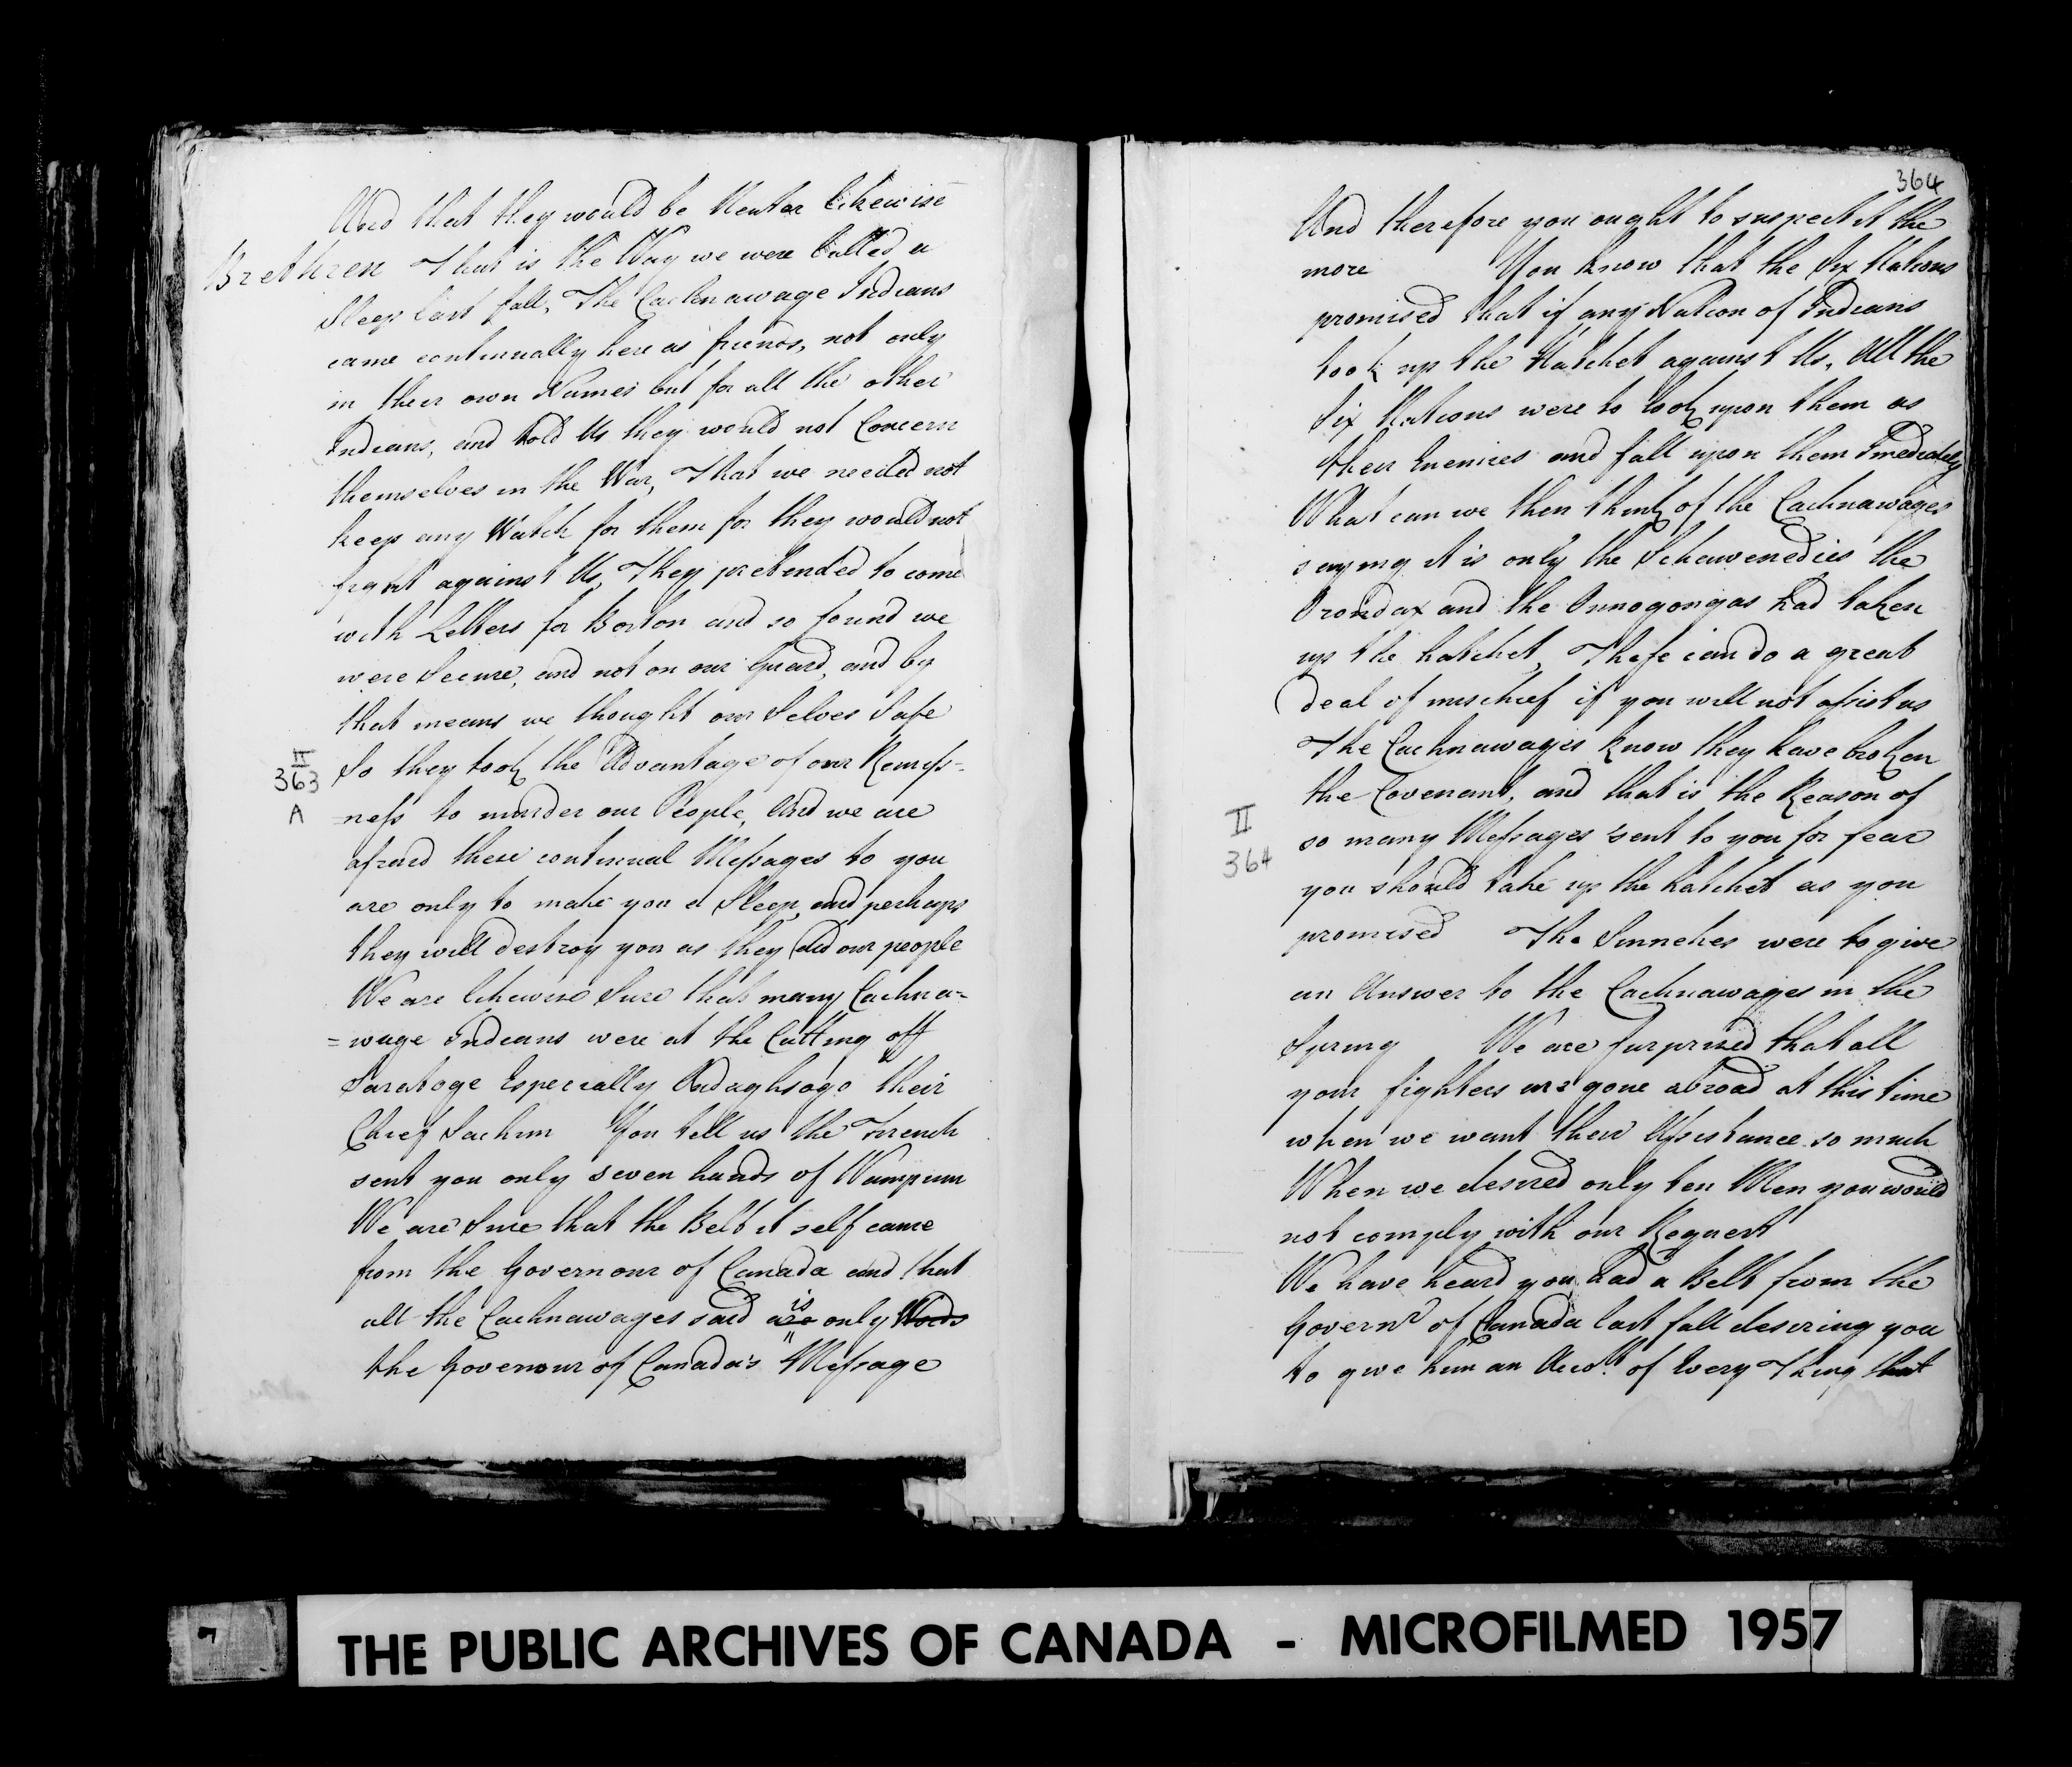 And that they would be Neuter likewise
Brethren That is the Way we were lulled a
Sleep last fall, The Cachnawage Indians
came continually here as friends, not only
in their own Names but for all the other
Indians, and told Us they would not Concern
themselves in the War, That we needed not
keep any Watch for them for they would not
fight against Us, They pretended to come
with Letters for Boston and so found we
were Secure, and not on our Guard, and by
that means we thought our Selves Safe
II
363
A
So they took the Advantage of our Remiss-
=ness to murder our People, And we are
afraid these continual Messages to you
are only to make you a Sleep, and perhaps
they will destroy you as they did our people
We are likewise Sure that many Cachna=
=wage Indians were at the Cutting off
Saratoge Especially Ondaghsago their
Chief Sachim You tell us the French
sent you only seven hands of Wampum
We are Sure that the Belt it self came
from the Governour of Canada and that
all the Cachnawages said are is only Words
the Governour of Canada's Message
364
And therefore you ought to suspect it the
more You know that the Six Nations
promised that if any Nation of Indians
took up the Hatchet against Us, All the
Six Nations were to look upon them as
their Enemies and fall upon them Imediately
What can we then think of the Cachnawages
saying it is only the Schawenedies the
Orondax and the Onnogongas had taken
up the hatchet, These can do a great
Deal of mischief if you will not assist us
The Cachnawages know they have broken
the Covenant, and that is the Reason of
II
364
so many Messages sent to you for fear
you should take up the hatchet as you
promised The Sinnekes were to give
an Answer to the Cachnawages in the
Spring We are Surprized that all
your fighters are gone abroad at this time
when we want their Assistance so much
When we desired only ten Men you would
not comply with our Request
We have heard you had a Belt from the
Governr of Canada last fall desiring you
to give him an Accot. of Every Thing that
THE PUBLIC ARCHIVES OF CANADA - MICROFILMED 1957